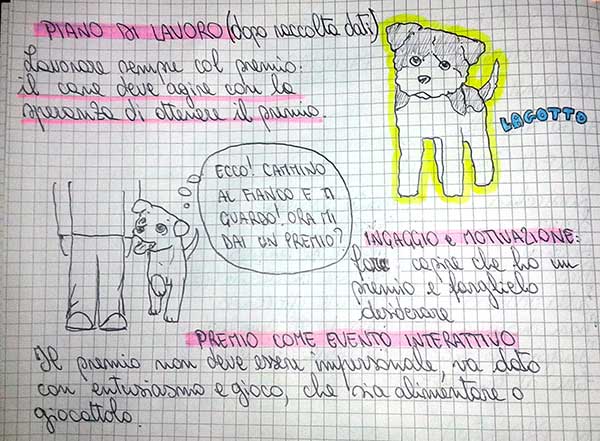 PIANO DI LAVORO (dopo raccolta dati)
Lavorare sempre col premio:
il cane deve agire con la
speranza di ottenere il premio.
LAGOTTO
ECCO! CAMMINO
AL FIANCO E TI
GUARDO! ORA MI
DAI UN PREMIO?
INGAGGIO e MOTIVAZIONE:
fare capire che ho un
premio e farglielo
desiderare
PREMIO COME EVENTO INTERATTIVO
Il premio non deve essere impersonale, va dato
con entusiasmo e gioco, che sia alimentare o
giocattolo.